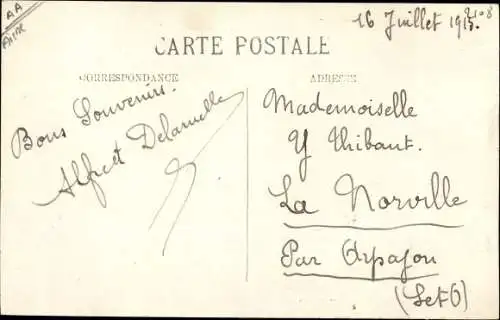 AA
Aisne
16 Juillet 1915
CARTE POSTALE
CORRESPONDANCE
ADRESSE
Bons Souvenirs.
Alfred
Mademoiselle
Y Thibaut.
La Norville
Par Arpajon
(Set O)